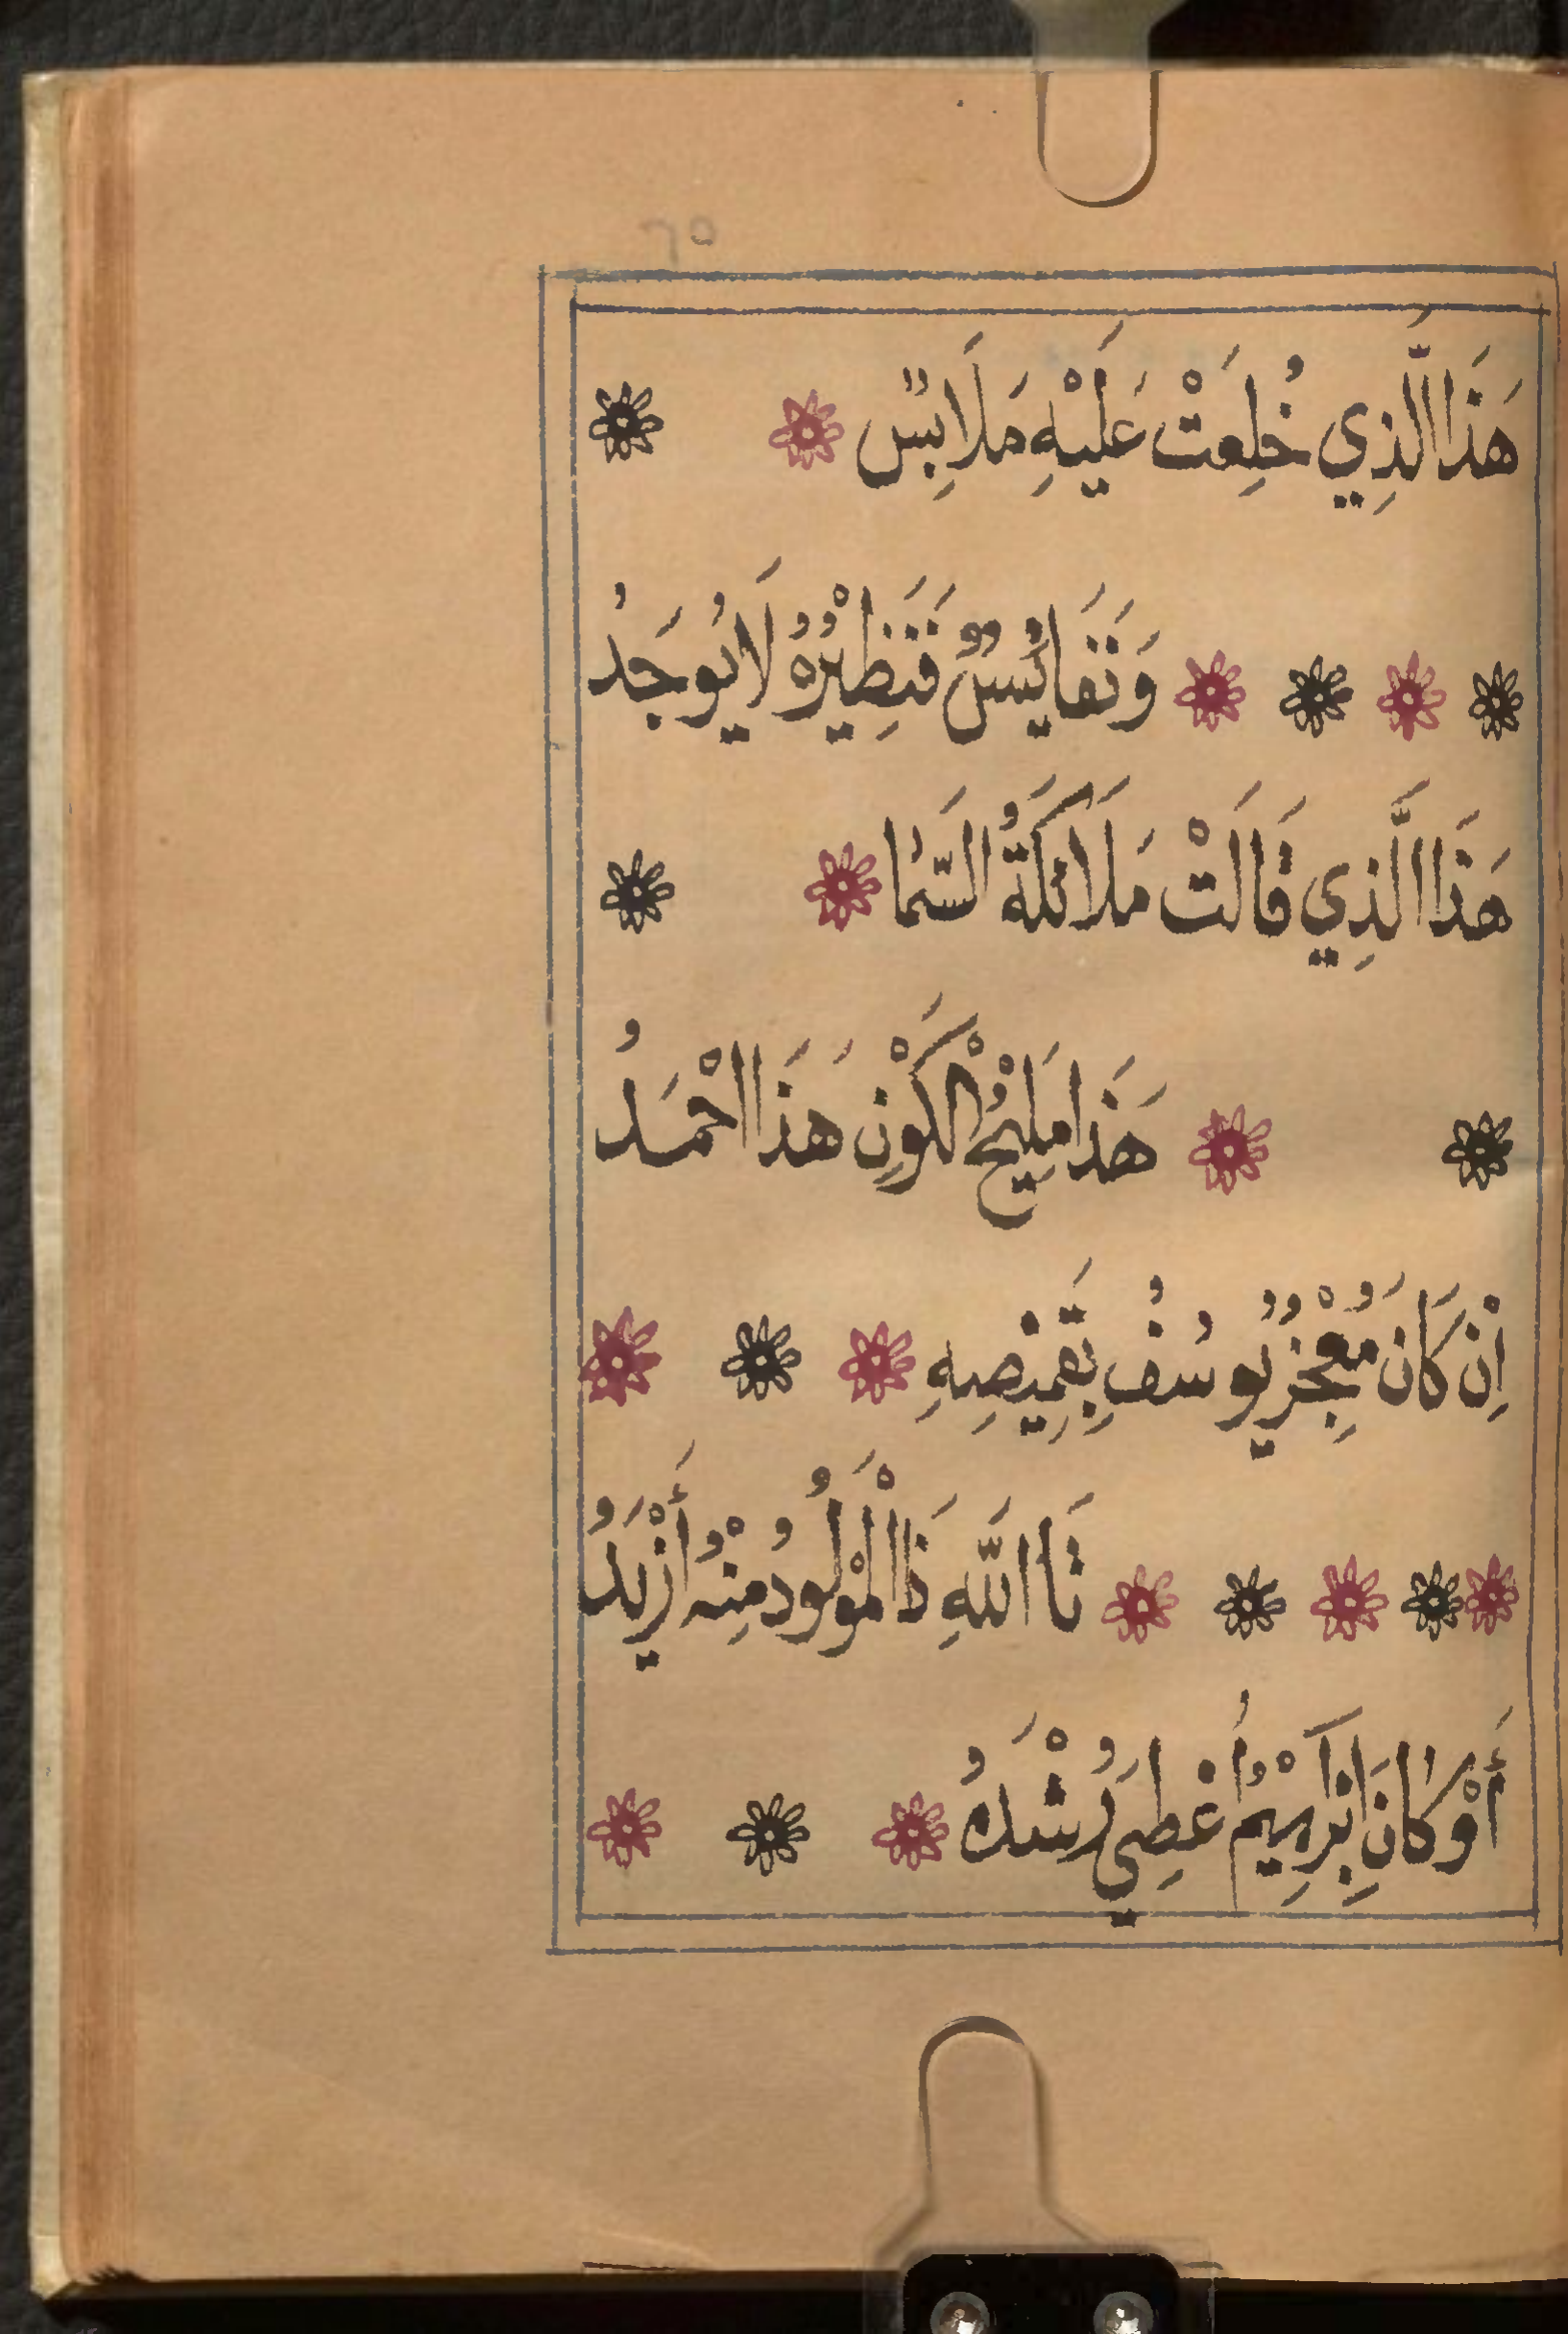 ٦٥
هَذَا الَّذِي خُلِعَتْ عَلَيْهِ مَلَابِسٌ
وَنَفَايُسٌ فَنَظِيْرُهُ لَا يُوجَدُ
هَذَا الَّذِي قَالَتْ مَلَائكَةُ السَّمَا
هَذَا مَلِيْحُ الْكَوْنِ هَذَا احْمَدُ
اِنْ كَانَ مُعْجِزُ يُوسُفِ بِقَمِيْصِهِ
تَا اللَّهِ ذَا الْمَوْلُودُ مِنْهُ أَزْيَدُ
أَوْ كَانَ اِبْرَاهِيْمُ أُعْطِيَ رُشْدَهُ